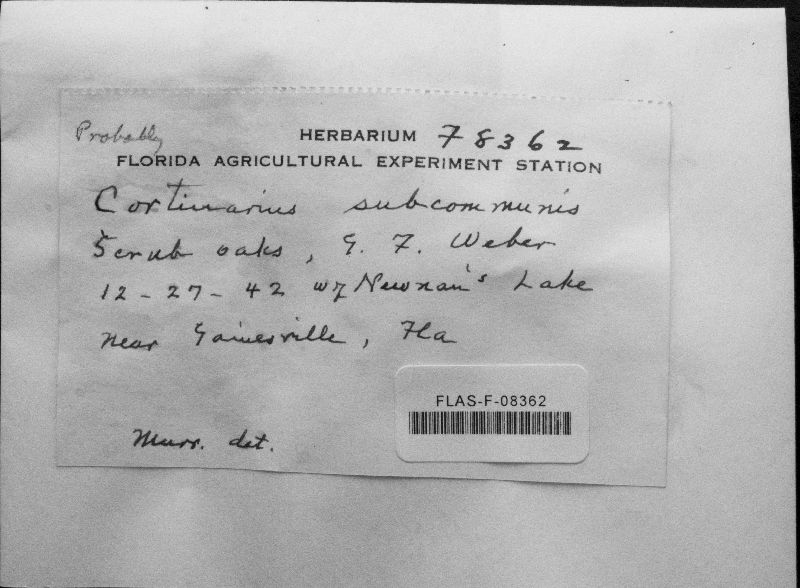 Probably
HERBARIUM F8362
FLORIDA AGRICULTURAL EXPERIMENT STATION
Cortinarius subcommunis
Scrub oaks, G. F. Weber
12-27-42 W of Newnan's Lake
near Gainesville, Fla
FLAS-F-08362
Murr. det.